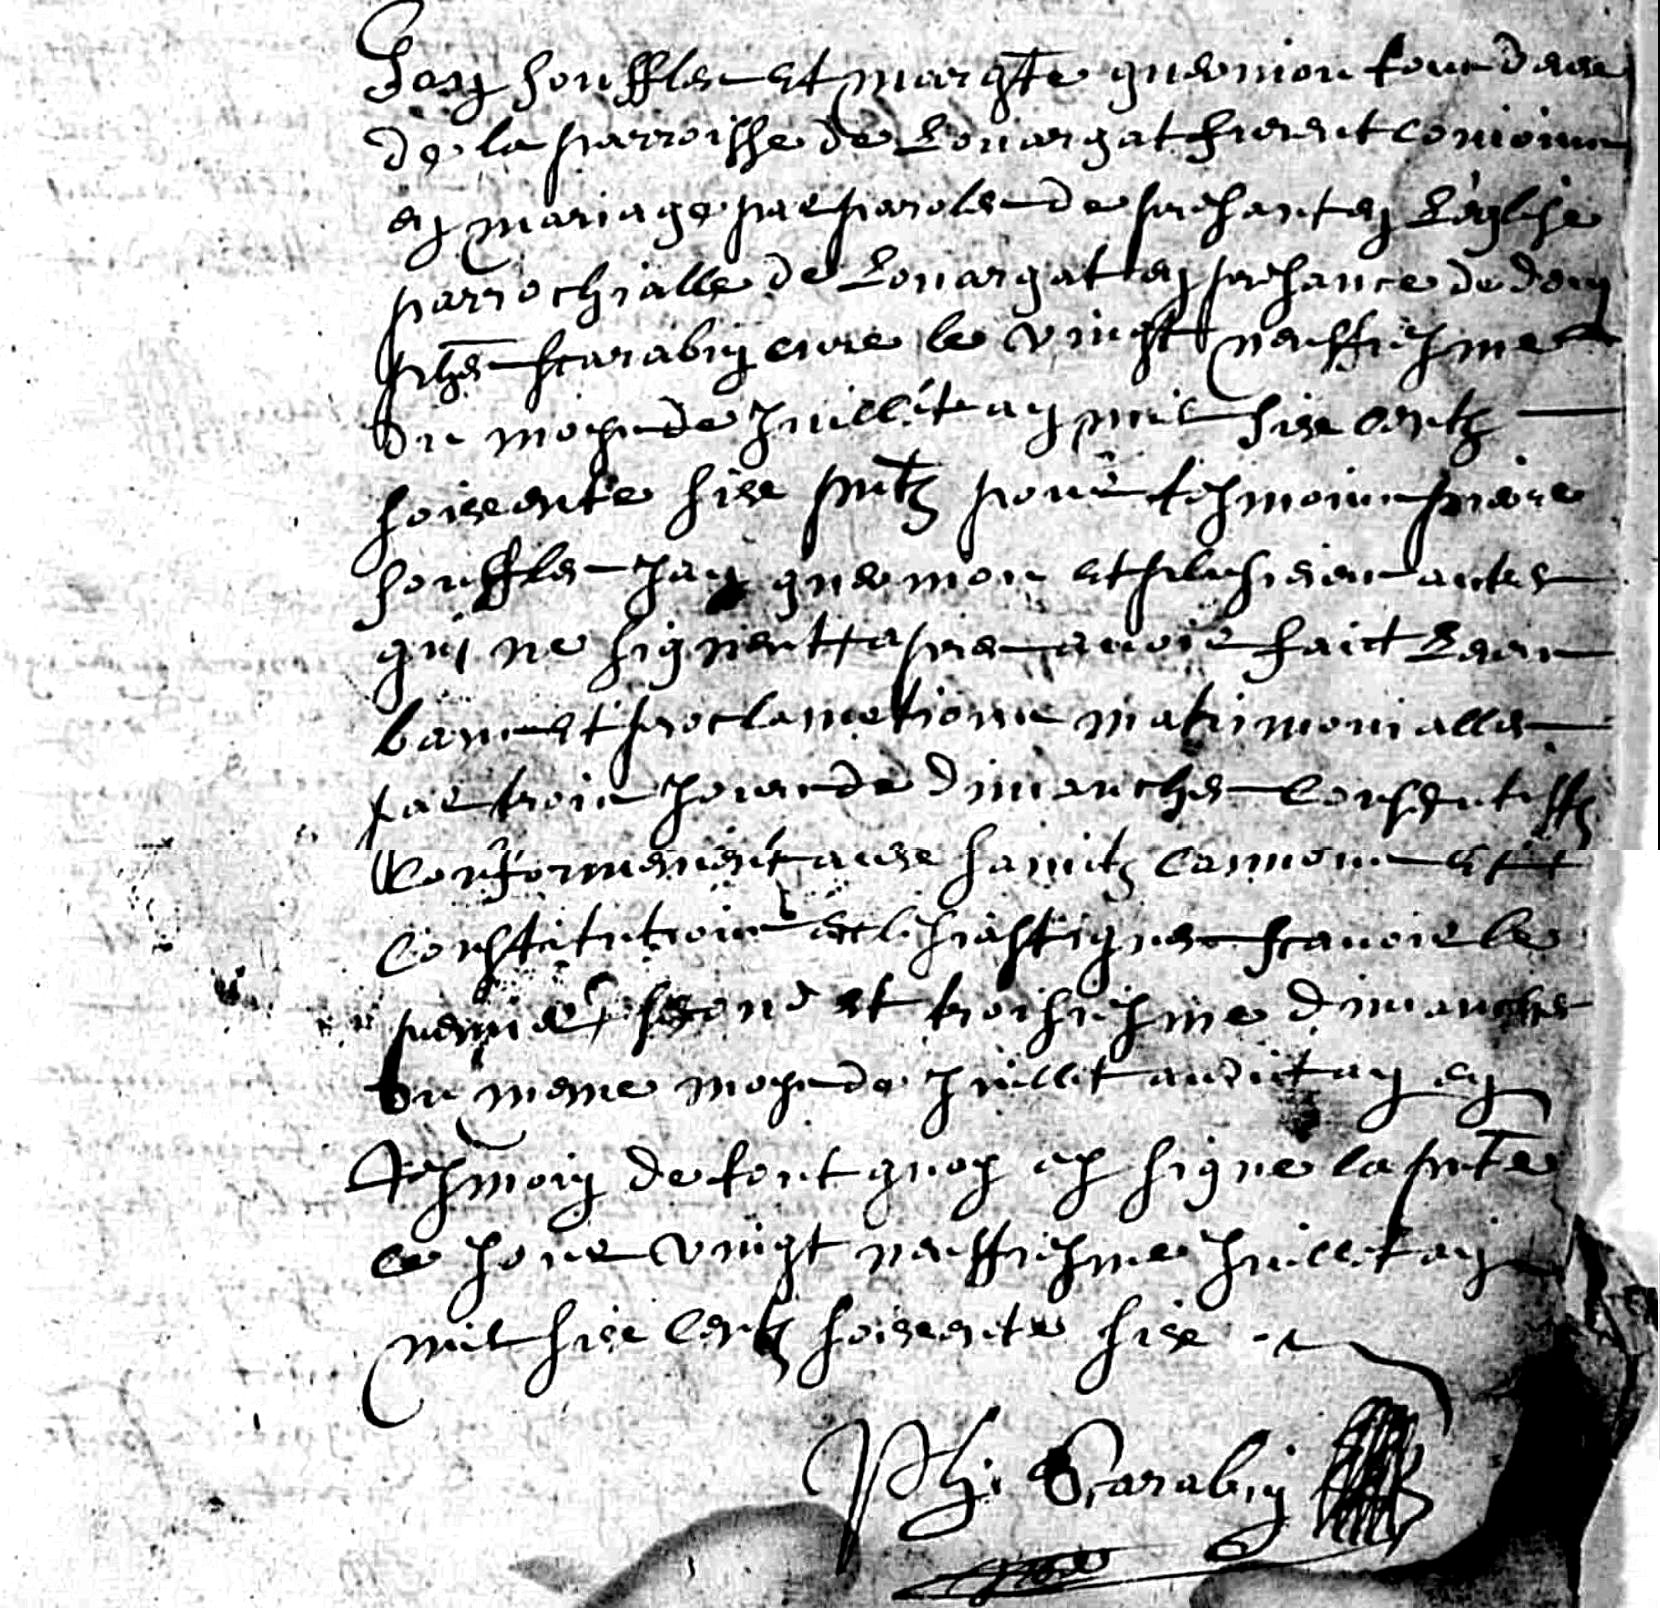 Jan souffles et margte guesmon tous deux
de la parroisse de Louargat furent conioins
en mariage par paroles de presant en L'eglise
parrochialle de Louargat en presance de dom
phes scarabin cure le vingt neuffiesme
du moys de Juillet an mil six centz
soixente six pntz pour tesmoins pierre
souffles Jan guesmon et plusieurs autes
qui ne signent apres avoir faict Leurs
bans et proclamations matrimonialles
par trois Jours de dimanches consecutiffz
conformement aux sainctz cannons et
constitutions ecclesiastiques scavoir le
premier second et troisiesme dimanches
du meme moys de Juillet audict an en
tesmoin de tout quoy ay signe la pnte
ce Jour vingt neuffiesme Juillet an
mil six centz soixente six
Phi Scarabin